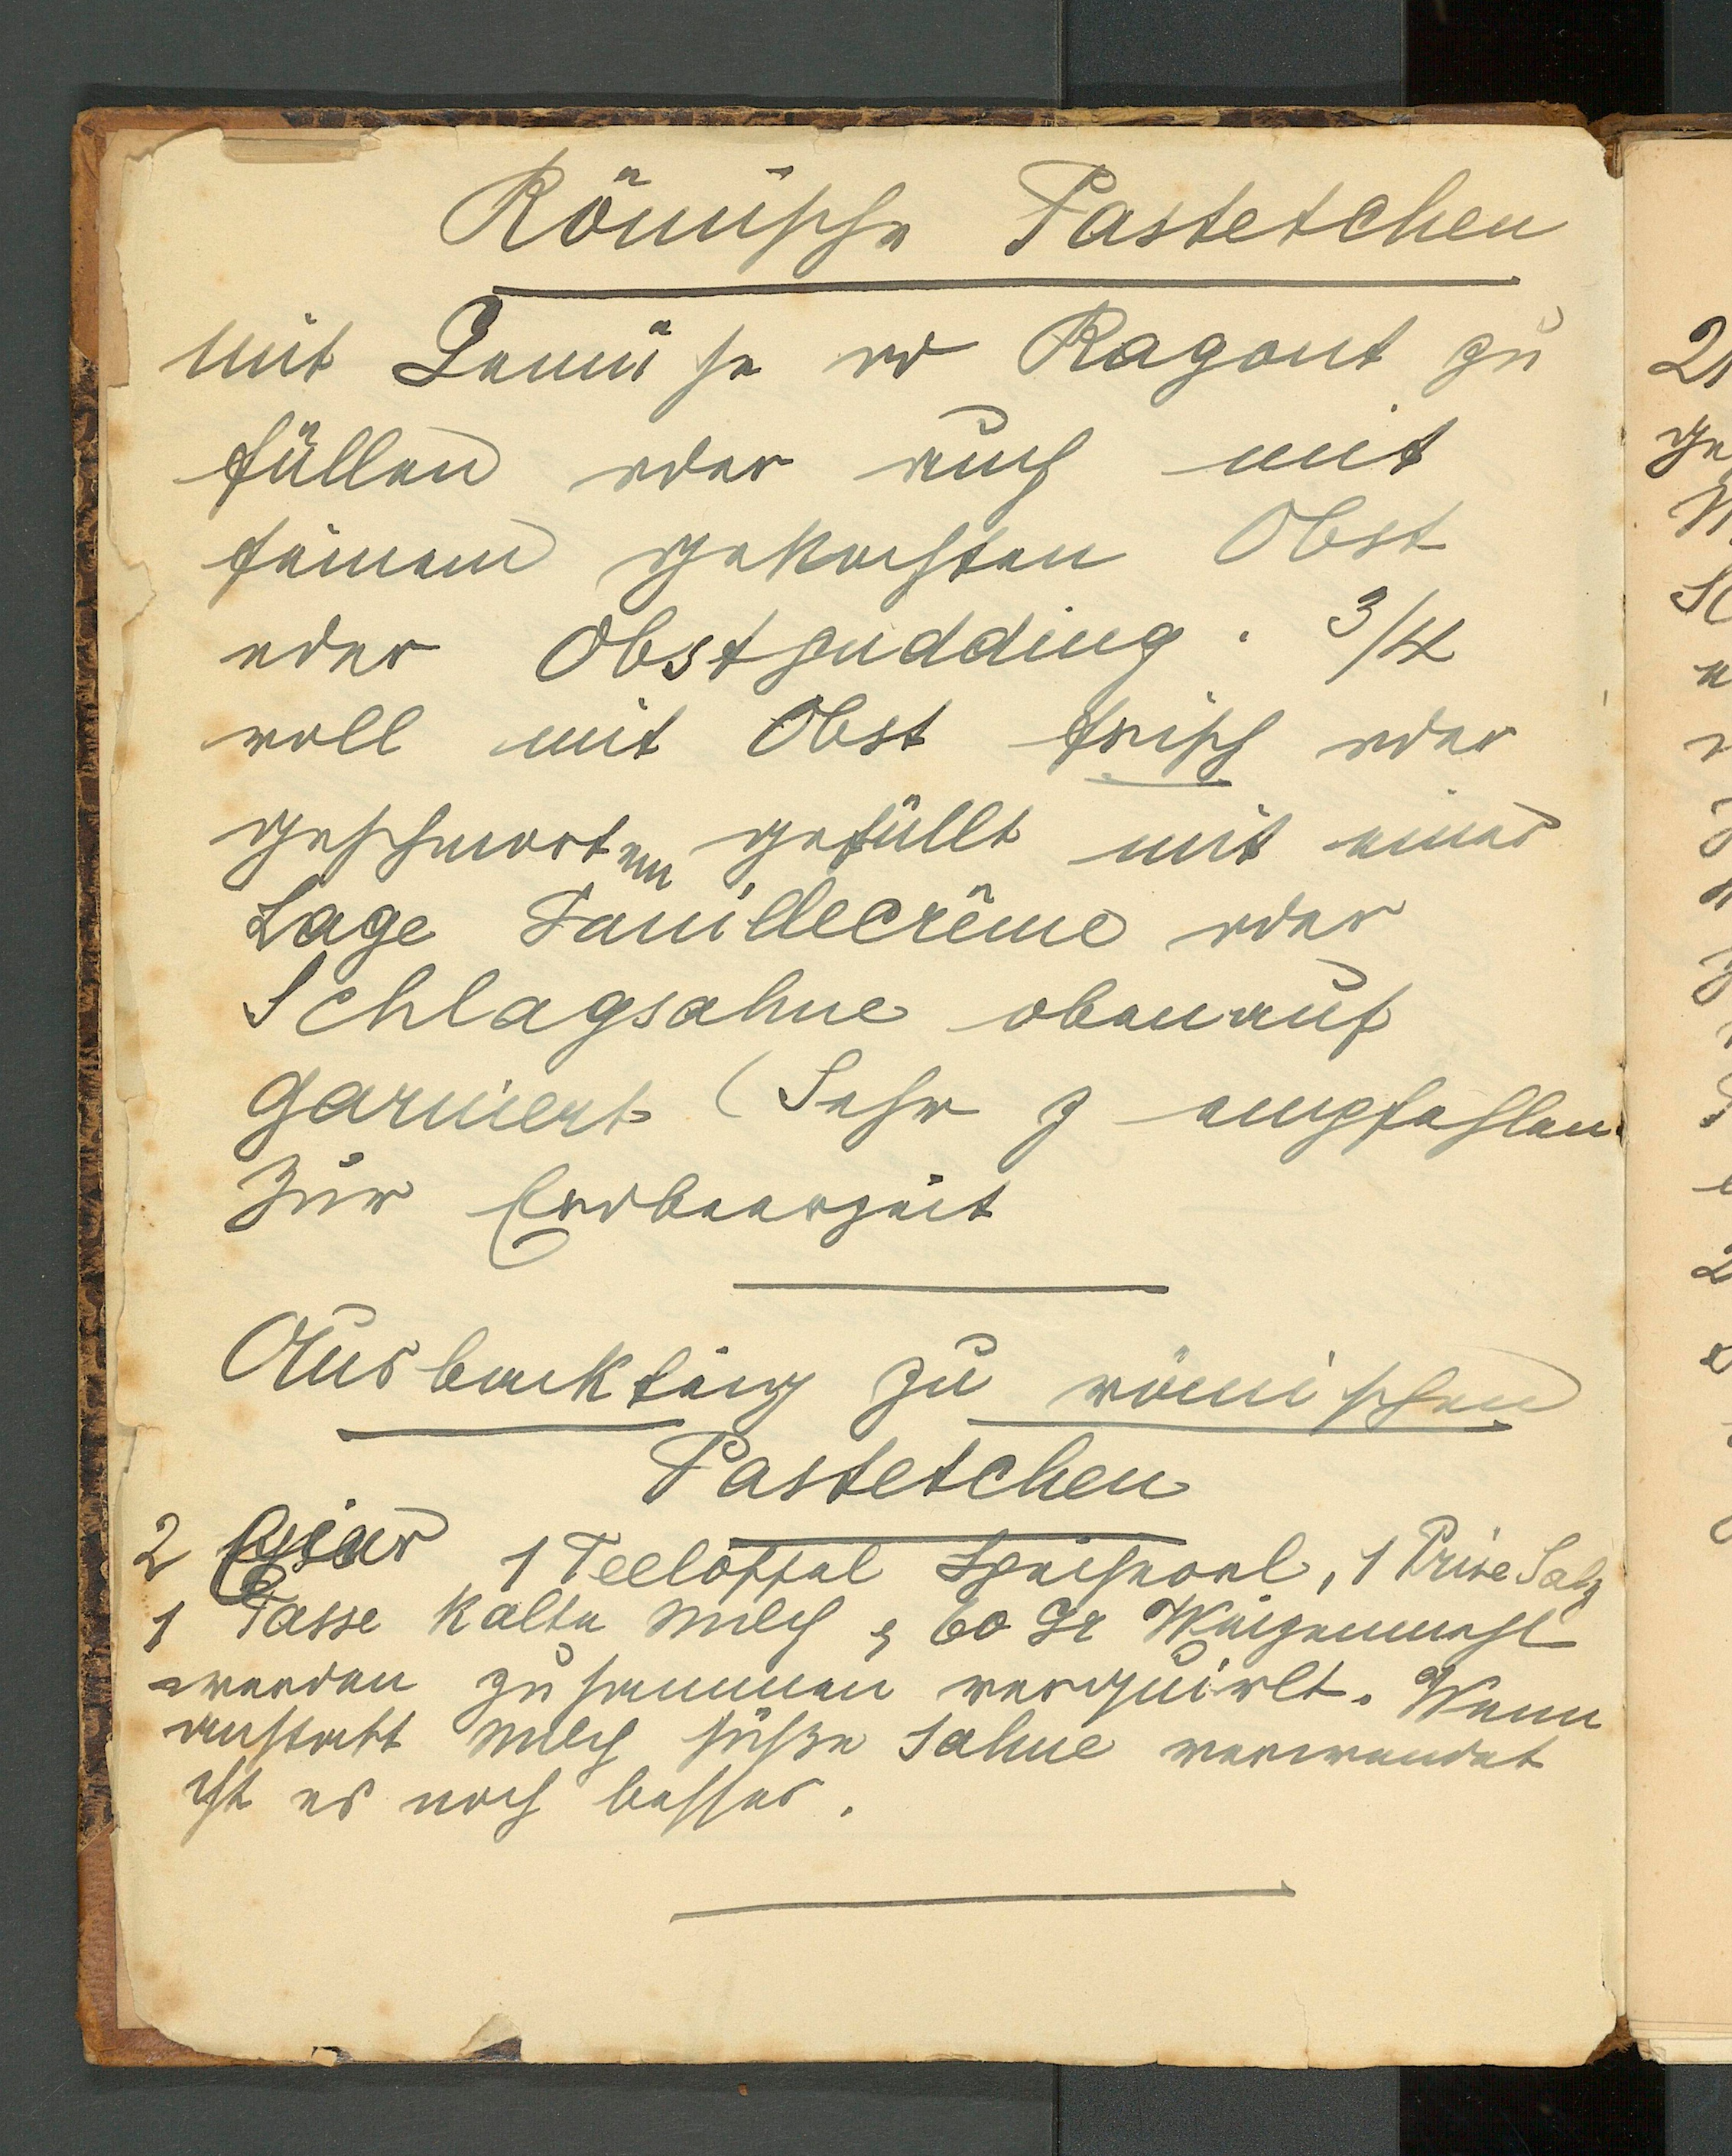 Römische Pastetchen
mit Gemüse od Ragout zu
füllen oder auch mit
feinem gekochten Obst
oder Obstpudding. 3/4
voll mit Obst frisch oder
geschmortem gefüllt mit einer
Lage Vanillecrême oder
Schlagsahne obenauf
garniert (Sehr z empfehlen
zur Erdbeerzeit
Ausbackteig zu römischen
Pastetchen
2 Eier 1 Teelöffel Speiseoel, 1 Prise Salz
1 Tasse kalte Milch, 60 Gr Weizenmehl
werden zusammen verquirlt. Wenn
anstatt Milch süße Sahne verwendet
ist es noch besser.
2
ge